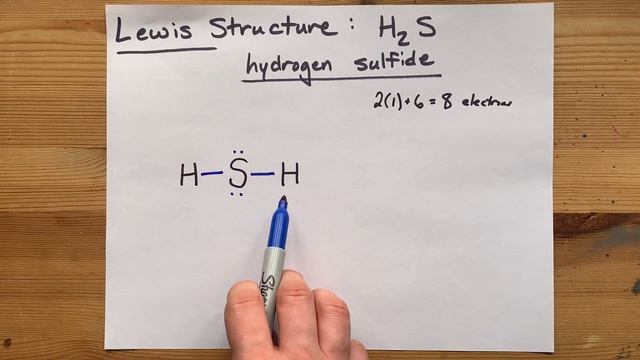 Lewis Structure: H₂S
hydrogen sulfide
2(1)+6=8 electrons
H–S–H